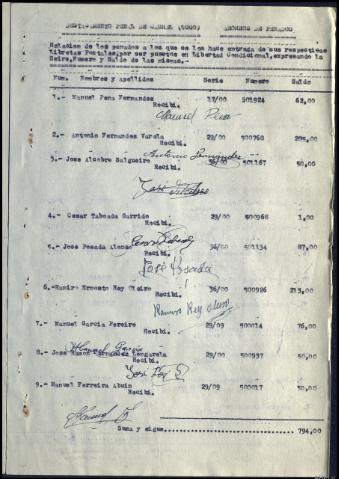 DESTACAMENTO PENAL DE        AHORROS DE PENADOS
Relacion de los penados a los que se les hace entrega de sus respectivas
Libretas Postales, por ser puestos en Libertad Condicional, expresando la
Serie, Numero y Saldo de las mismas.
Num. Nombres y Apellidos Serie Numero Saldo
1.- Manuel Pena Fernandez 17/00 501924 62,00
Recibi.
Manuel Pena
2.- Antonio Fernandez Varela 29/00 500760
Recibi.
Antonio Fernandez
3.- Jose Alcobre Salgueiro 501167 50,00
Recibi.
4.- Cesar Taboada Garrido 29/00 500968 1,00
Recibi.
5.- Jose Posada Alonso 36/00 501134 87,00
Recibi.
José Posada
6.- Ramiro Ernesto Rey 36/00 500926 213,00
Recibi.
Ramiro Rey
7.- Manuel Garcia Pereiro 29/09 500014 76,00
Recibi.
Manuel Garcia
8.- Jose Ramon Fernandez 29/00 500937 50,00
Recibi.
9.- Manuel Ferreira Abuin 29/09 500017 50,00
Recibi.
Suma y sigue 794,00